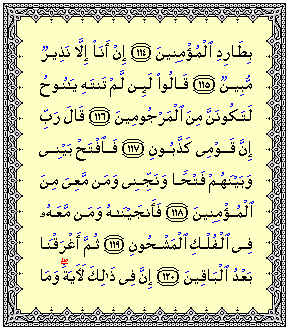 بِطَارِدِ ٱلْمُؤْمِنِينَ ﴿١١٤﴾ إِنْ أَنَا۠ إِلَّا نَذِيرٌۭ
مُّبِينٌۭ ﴿١١٥﴾ قَالُوا۟ لَئِن لَّمْ تَنتَهِ يَـٰنُوحُ
لَتَكُونَنَّ مِنَ ٱلْمَرْجُومِينَ ﴿١١٦﴾ قَالَ رَبِّ
إِنَّ قَوْمِى كَذَّبُونِ ﴿١١٧﴾ فَٱفْتَحْ بَيْنِى
وَبَيْنَهُمْ فَتْحًۭا وَنَجِّنِى وَمَن مَّعِىَ مِنَ
ٱلْمُؤْمِنِينَ ﴿١١٨﴾ فَأَنجَيْنَـٰهُ وَمَن مَّعَهُۥ
فِى ٱلْفُلْكِ ٱلْمَشْحُونِ ﴿١١٩﴾ ثُمَّ أَغْرَقْنَا
بَعْدُ ٱلْبَاقِينَ ﴿١٢٠﴾ إِنَّ فِى ذَٰلِكَ لَـَٔايَةًۭ ۖ وَمَا